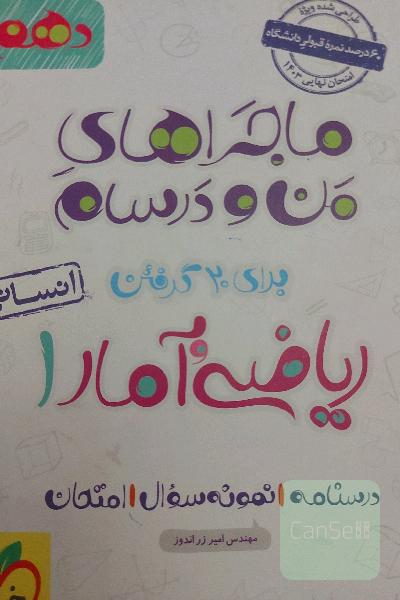 دهم
طراحی شده ویژۀ
۶۰ درصد نمرۀ قبولی دانشگاه
امتحان نهایی ۱۴۰۳
ماجراهای
من و درسام
برای ۲۰ گرفتن
ریاضی و آمار ۱
درسنامه | نمونه سؤال | امتحان
مهندس امیر زراندوز
CanSell